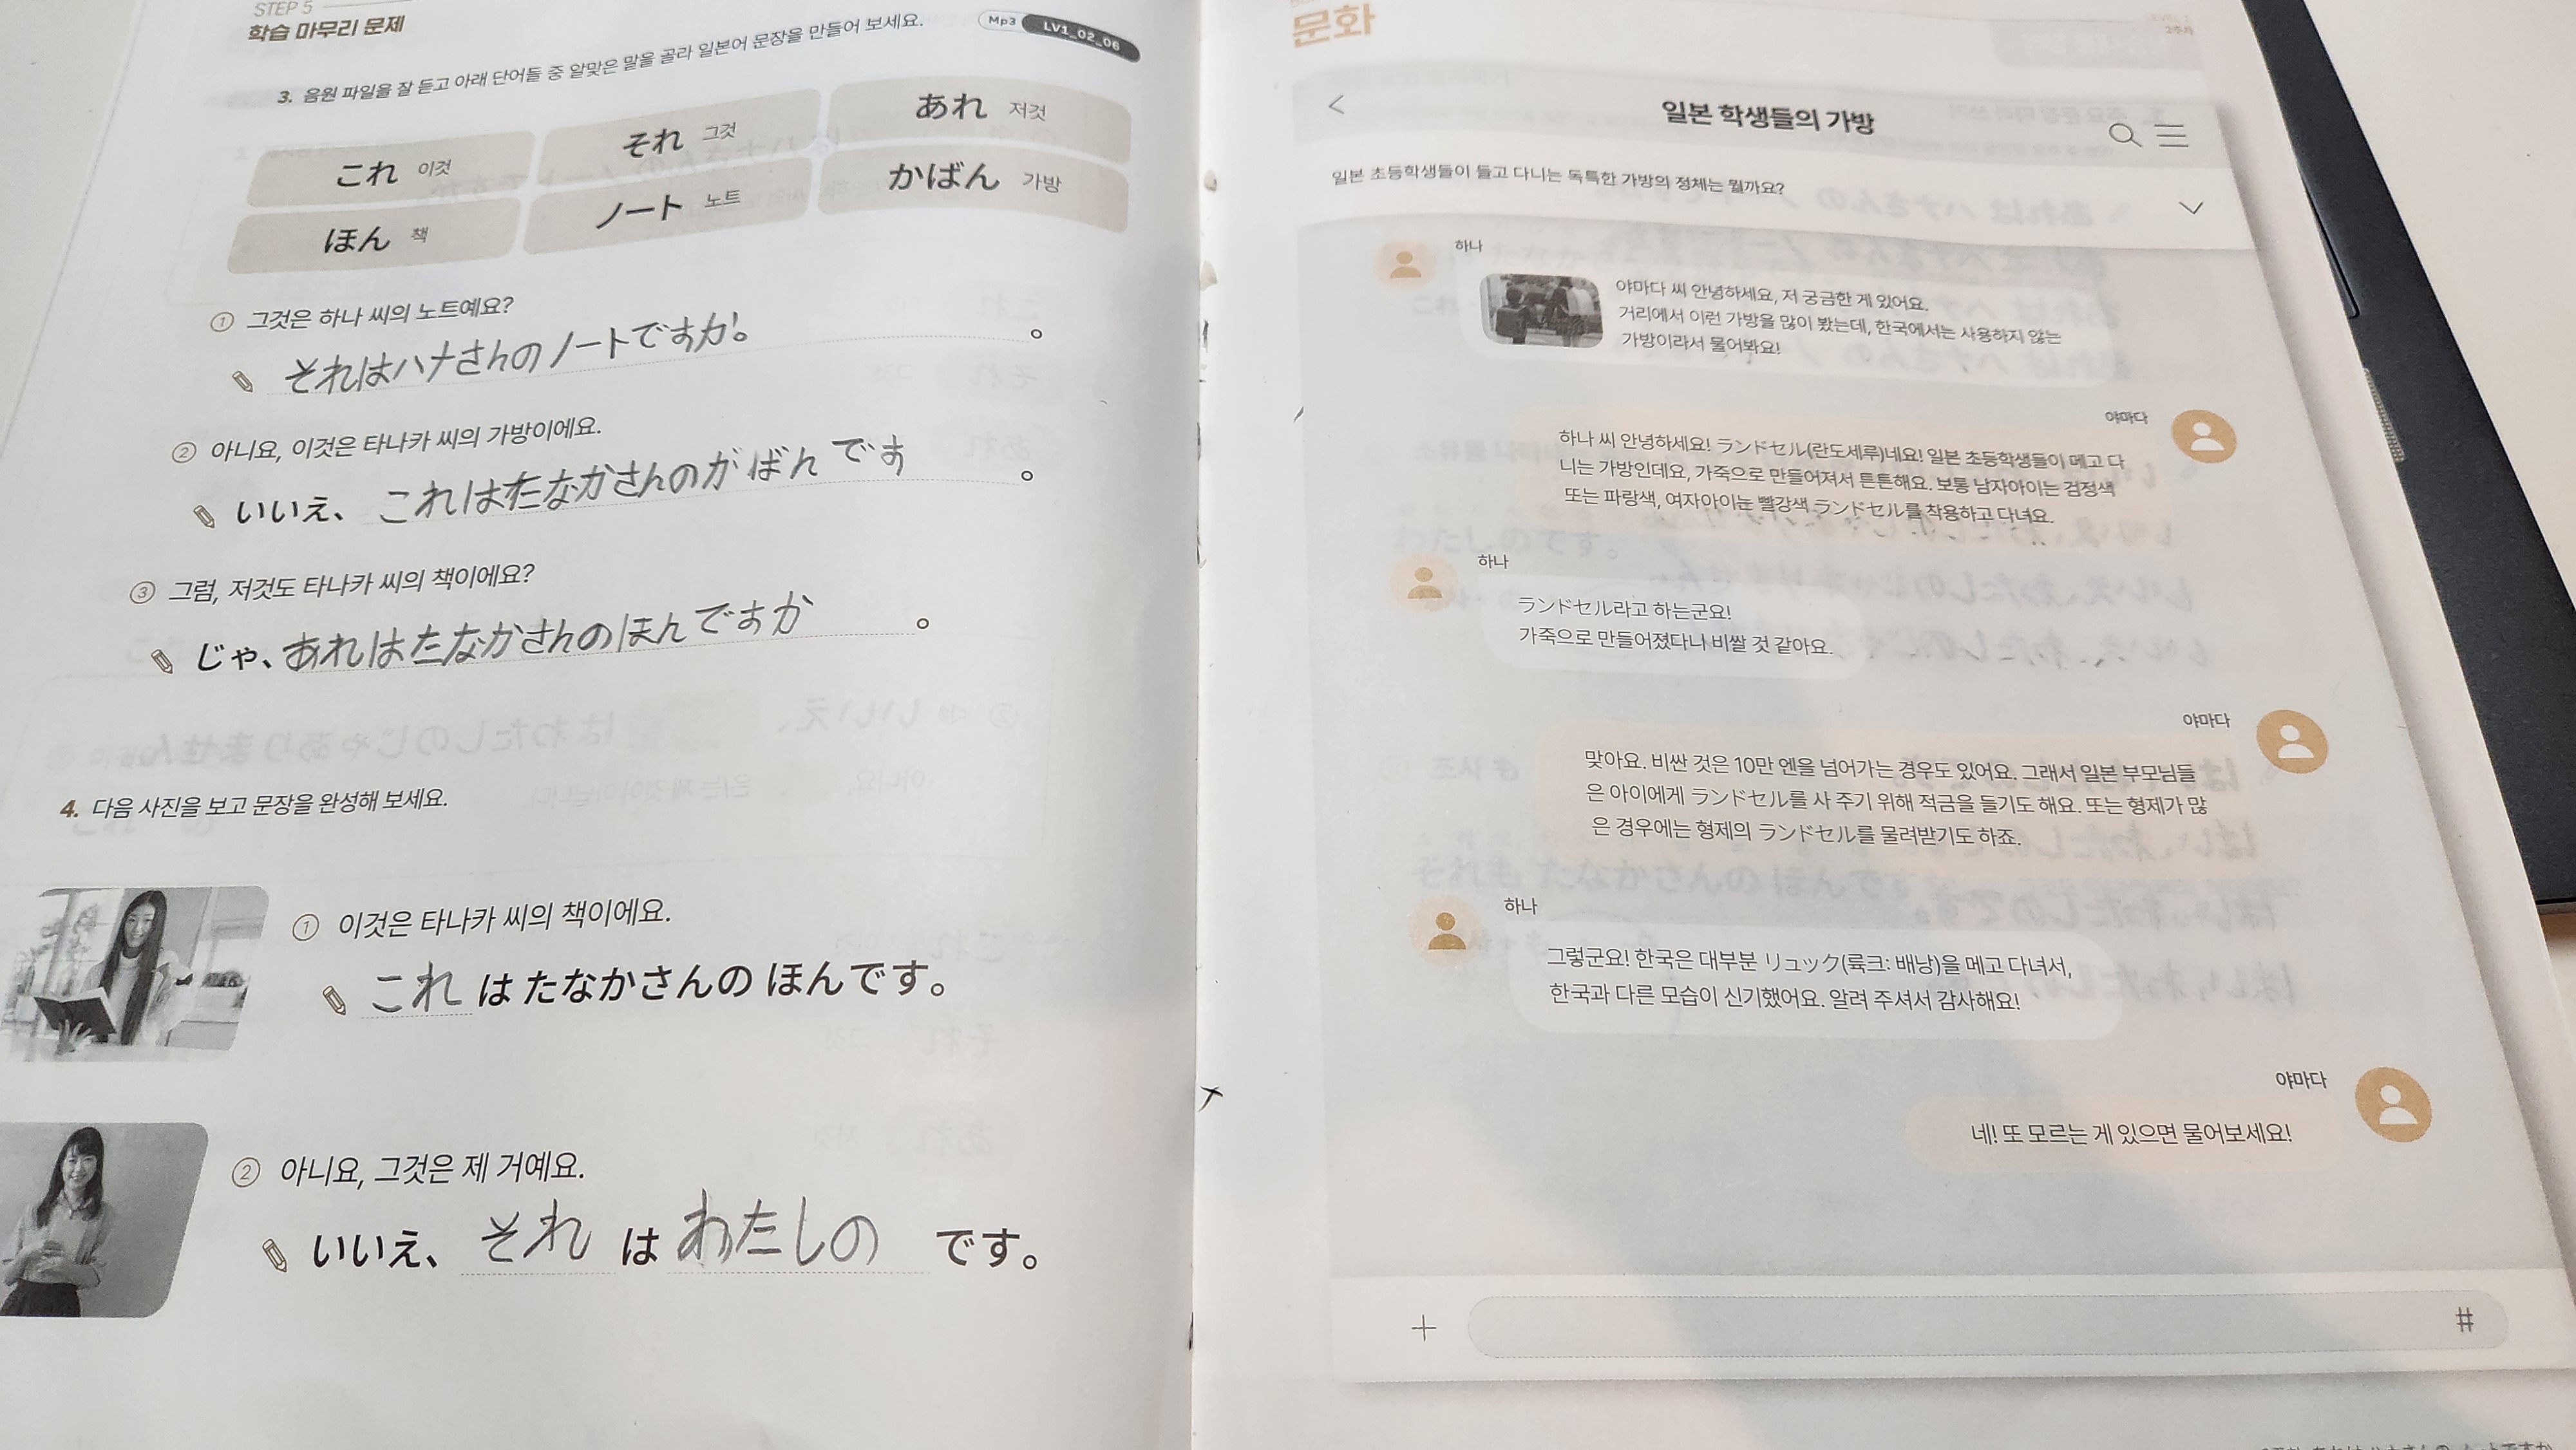 STEP 5
학습 마무리 문제
Mp3 LV1_02_06
3. 음원 파일을 잘 듣고 아래 단어들 중 알맞은 말을 골라 일본어 문장을 만들어 보세요.
これ 이것
それ 그것
あれ 저것
ほん 책
ノート 노트
かばん 가방
① 그것은 하나 씨의 노트예요?
それはハナさんのノートですか。 。
② 아니요, 이것은 타나카 씨의 가방이에요.
いいえ、これはたなかさんのがばんです 。
③ 그럼, 저것도 타나카 씨의 책이에요?
じゃ、あれはたなかさんのほんですか 。
4. 다음 사진을 보고 문장을 완성해 보세요.
① 이것은 타나카 씨의 책이에요.
これ は たなかさんの ほんです。
② 아니요, 그것은 제 거예요.
いいえ、それ は わたしの です。
문화
일본 학생들의 가방
일본 초등학생들이 들고 다니는 독특한 가방의 정체는 뭘까요?
하나
야마다 씨 안녕하세요, 저 궁금한 게 있어요.
거리에서 이런 가방을 많이 봤는데, 한국에서는 사용하지 않는
가방이라서 물어봐요!
야마다
하나 씨 안녕하세요! ランドセル(란도세루)네요! 일본 초등학생들이 메고 다
니는 가방인데요, 가죽으로 만들어져서 튼튼해요. 보통 남자아이는 검정색
또는 파랑색, 여자아이는 빨강색 ランドセル를 착용하고 다녀요.
하나
ランドセル라고 하는군요!
가죽으로 만들어졌다니 비쌀 것 같아요.
야마다
맞아요. 비싼 것은 10만 엔을 넘어가는 경우도 있어요. 그래서 일본 부모님들
은 아이에게 ランドセル를 사 주기 위해 적금을 들기도 해요. 또는 형제가 많
은 경우에는 형제의 ランドセル를 물려받기도 하죠.
하나
그렇군요! 한국은 대부분 リュック(륙크: 배낭)을 메고 다녀서,
한국과 다른 모습이 신기했어요. 알려 주셔서 감사해요!
야마다
네! 또 모르는 게 있으면 물어보세요!
+ #